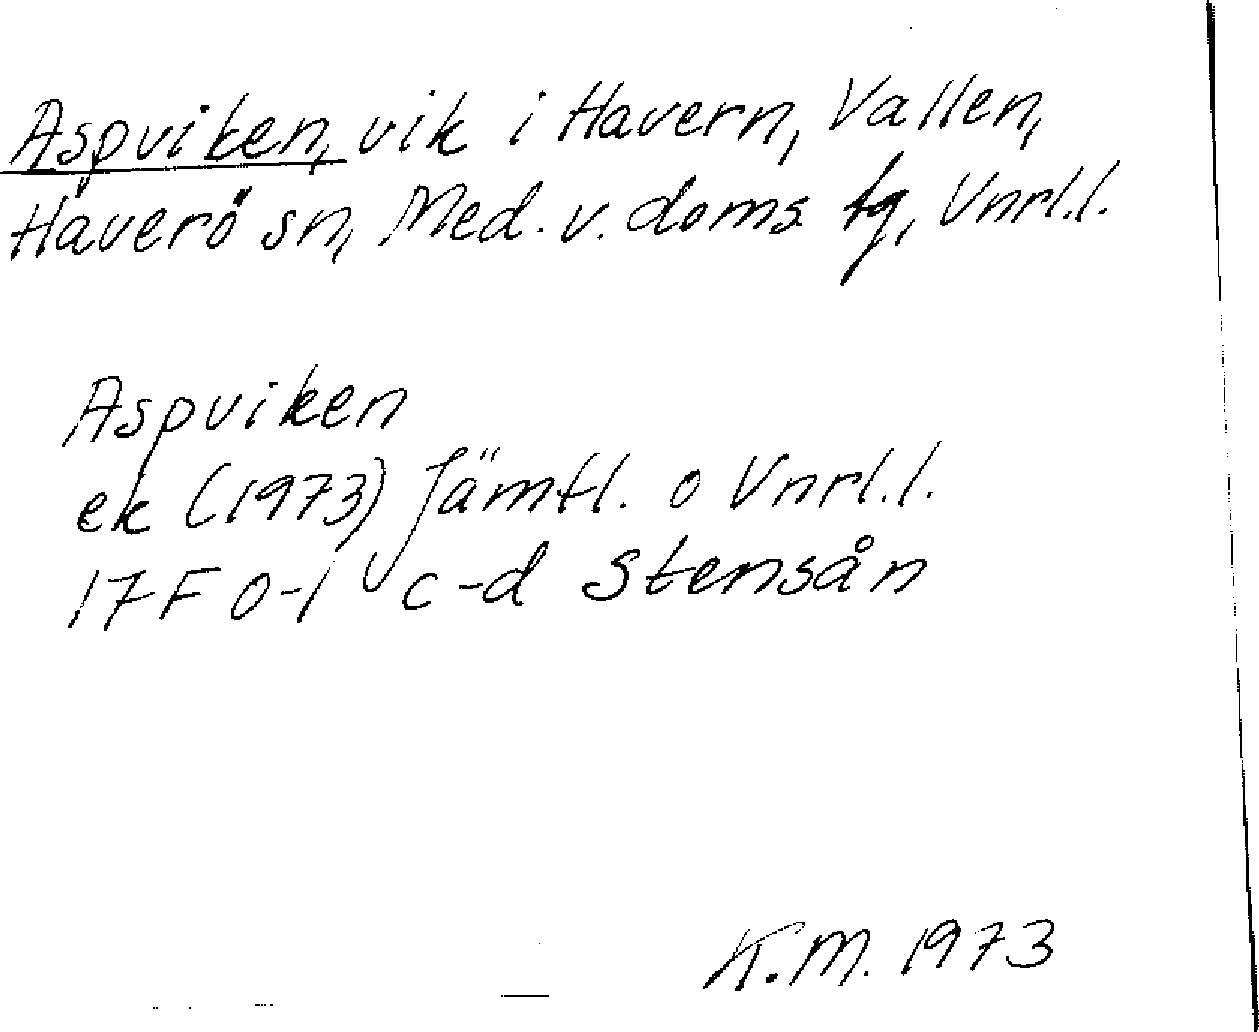 Aspviken, vik i Havern, Vallen,
Haverö sn, Med. v. doms tg, Vnrl.l.
Aspviken
ek (1973) Jämtl. o Vnrl.l.
17F 0-1 c-d Stensån
K.M. 1973